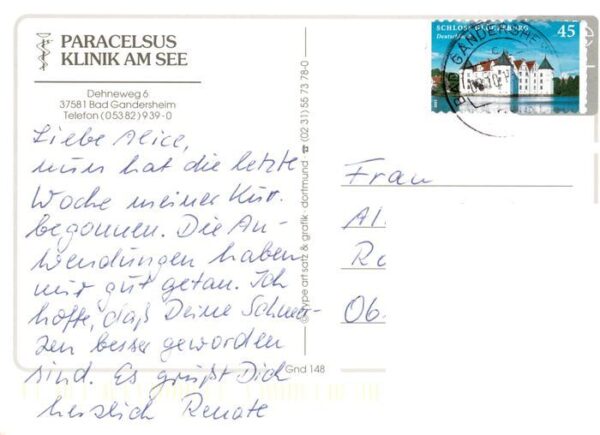 PARACELSUS
KLINIK AM SEE
Dehneweg 6
37581 Bad Gandersheim
Telefon (05382) 939-0
Liebe Alice,
nun hat die letzte
Woche meiner Kur
begonnen. Die An-
wendungen haben
mir gut getan. Ich
hoffe, daß Deine Schmer-
zen besser geworden
sind. Es grüßt Dich
herzlich Renate
type art satz & grafik · dortmund ☎ (02 31) 55 73 78-0
Gnd 148
SCHLOSS GLÜCKSBURG
45
Deutschland
BAD GANDERSHEIM
Frau
Al
Re
Ob